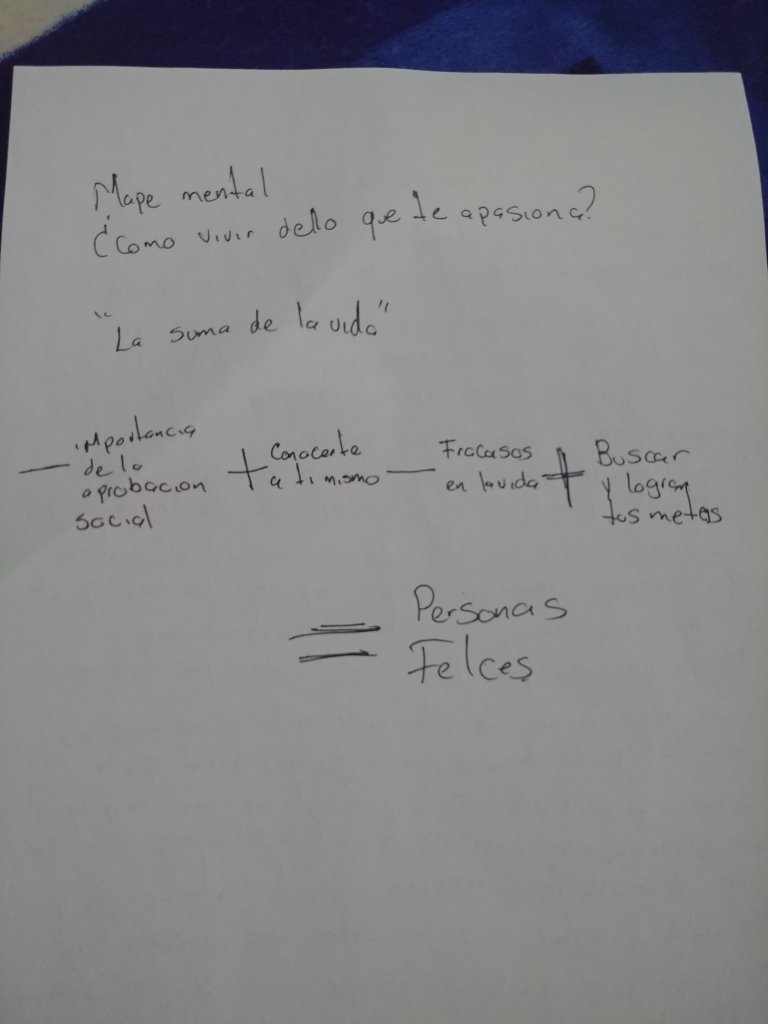 Mape mental
¿Como vivir dello que te apasiona?
"La suma de la vida"
— importancia
de la
aprobacion
social
+ Conocerte
a ti mismo
— Fracasos
en la vida
+ Buscar
y lograr
tus metas
= Personas
Felces